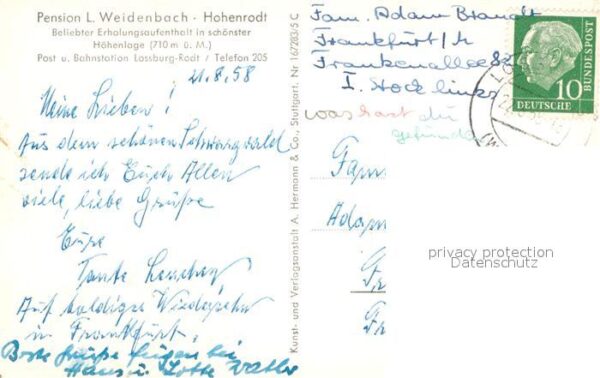 Pension L. Weidenbach · Hohenrodt
Beliebter Erholungsaufenthalt in schönster
Höhenlage (710 m ü. M.)
Post u. Bahnstation Lossburg-Rodt / Telefon 205
21.8.58
Meine Lieben!
Aus dem schönen Schwarzwald
sende ich Euch Allen
viele, liebe Grüße
Eure
Tante
Auf baldiges Wiedersehn
in Frankfurt.
Beste Grüße fügen bei
Hans u. Lotte
Kunst- und Verlagsanstalt A. Hermann & Co., Stuttgart. Nr 16/283/5 C
Fam. Adam Brandt
Frankfurt/M
Frankenallee
I. Stock links
was hast du
gefunde
Fam
Adam
Fr
Fr
10
DEUTSCHE
BUNDESPOST
privacy protection
Datenschutz